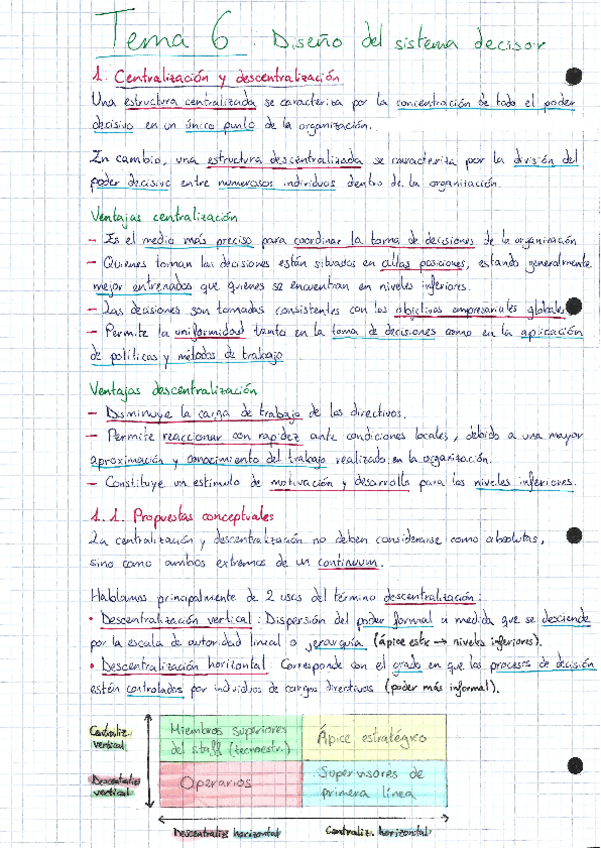 Tema 6. Diseño del sistema decisor
1. Centralización y descentralización
Una estructura centralizada se caracteriza por la concentración de todo el poder
decisivo en un único punto de la organización.
En cambio, una estructura descentralizada se caracteriza por la división del
poder decisivo entre numerosos individuos dentro de la organización.
Ventajas centralización
- Es el medio más preciso para coordinar la toma de decisiones de la organización
- Quienes toman las decisiones están situados en altas posiciones, estando generalmente
mejor entrenados que quienes se encuentran en niveles inferiores.
- Las decisiones son tomadas consistentes con los objetivos empresariales globales
- Permite la uniformidad tanto en la toma de decisiones como en la aplicación
de políticas y métodos de trabajo
Ventajas descentralización
- Disminuye la carga de trabajo de los directivos.
- Permite reaccionar con rapidez ante condiciones locales, debido a una mayor
aproximación y conocimiento del trabajo realizado en la organización.
- Constituye un estímulo de motivación y desarrollo para los niveles inferiores.
1.1. Propuestas conceptuales
La centralización y descentralización no deben considerarse como absolutas,
sino como ambos extremos de un continuum.
Hablamos principalmente de 2 usos del término descentralización:
• Descentralización vertical: Dispersión del poder formal a medida que se desciende
por la escala de autoridad lineal o jerarquía. (ápice estr. → niveles inferiores).
• Descentralización horizontal: Corresponde con el grado en que los procesos de decisión
estén controlados por individuos de cargos directivos (poder más informal).
Centraliz. vertical
Miembros superiores del staff (tecnoestr.)
Ápice estratégico
Descentraliz vertical
Operarios
Supervisores de primera línea
Descentraliz horizontal
Centraliz. horizontal